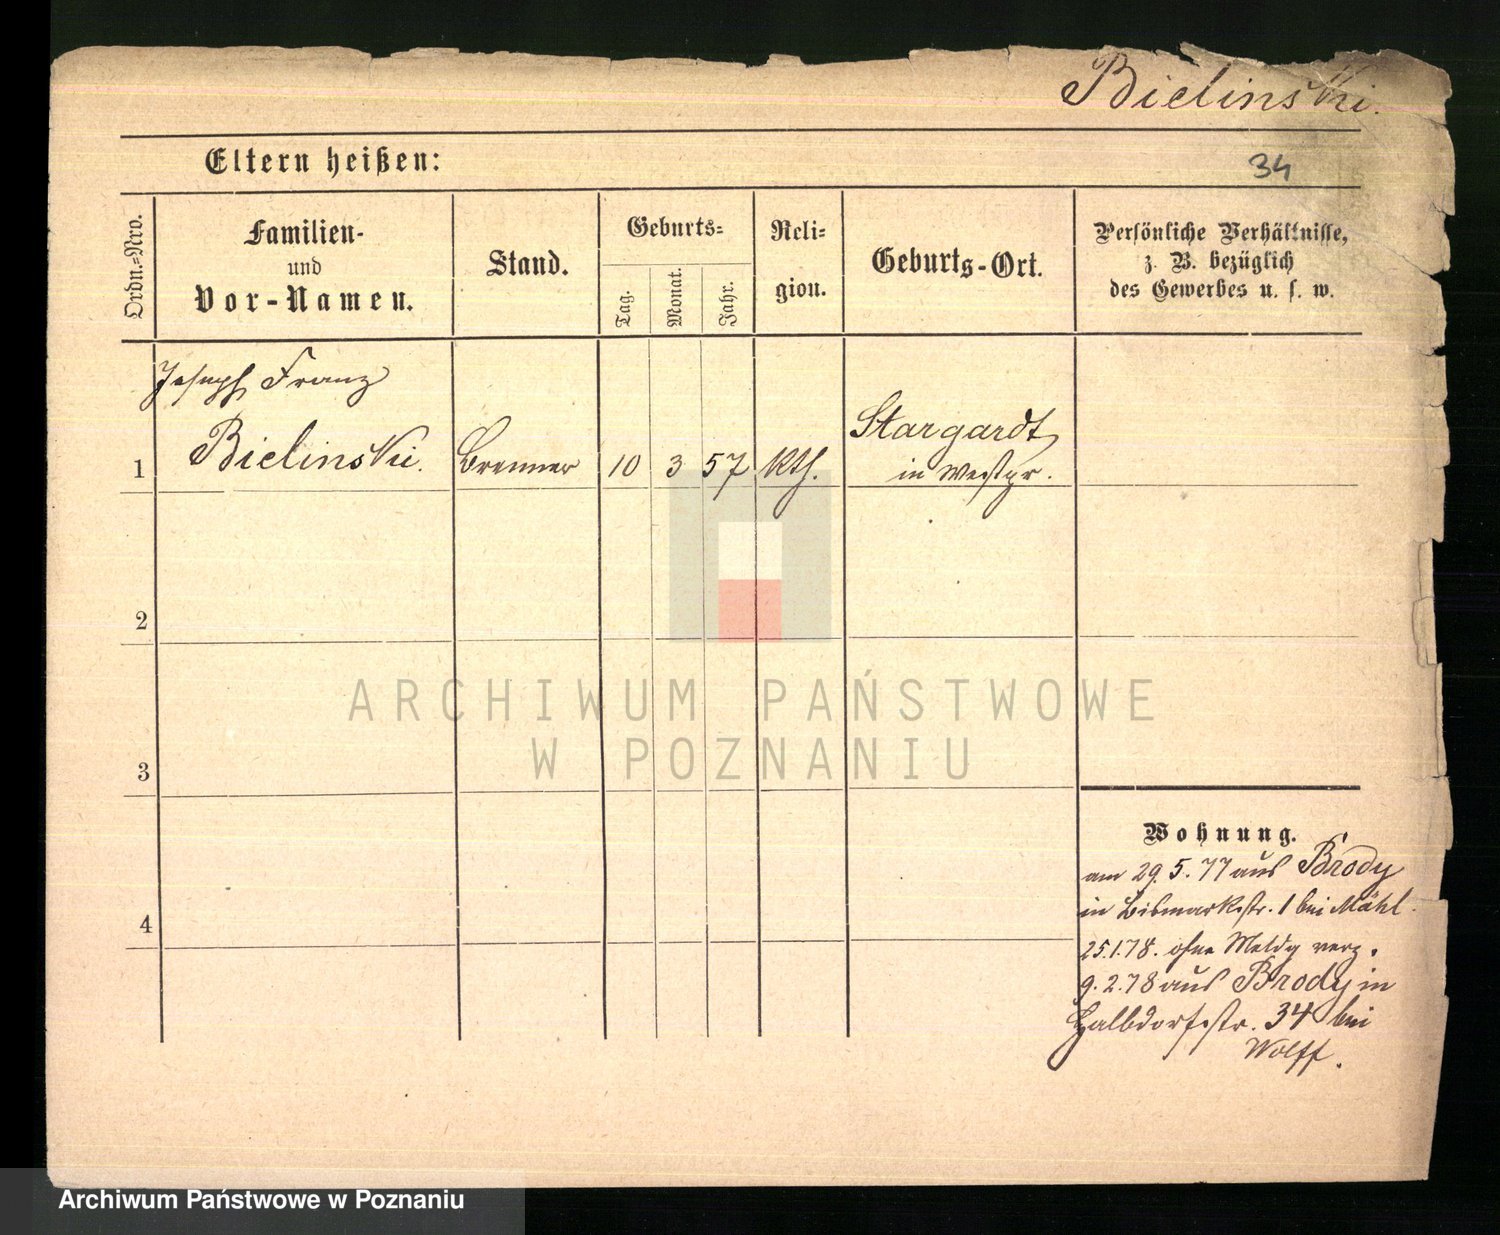 Bielinski.
Eltern heißen:
34
Ordn.=Nro.
Familien-
und
Vor-Namen.
Stand.
Geburts=
Tag.
Monat.
Jahr.
Reli=
gion.
Geburts-Ort.
Persönliche Verhältnisse,
z. B. bezüglich
des Gewerbes u. s. w.
Joseph Franz
1 Bielinski. Brenner 10 3 57 kth. Stargardt
in Westpr.
2
3
4
Wohnung.
am 29.5.77 aus Brody
in Bismarkstr. 1 bei Mähl.
25.1.78. ohne Meldg verz.
9.2.78 aus Brody in
Halbdorfstr. 34 bei
Wolff.
ARCHIWUM PAŃSTWOWE
W POZNANIU
Archiwum Państwowe w Poznaniu